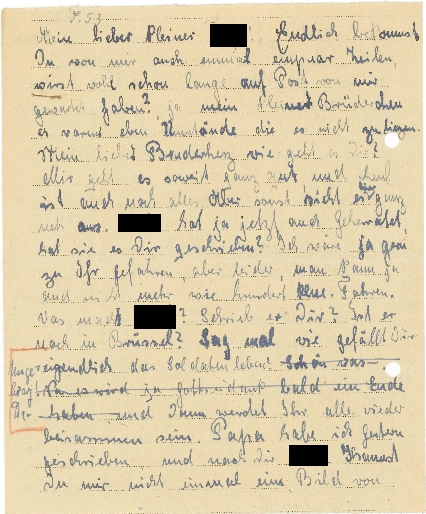 7.53
Mein lieber kleiner Endlich bekommst
Du von mir auch einmal ein paar Zeilen,
wirst wohl schon lange auf Post von mir
gewartet haben? ja mein kleines Brüderchen
es waren eben Umstände die es nicht zuliesen.
Mein liebes Bruderherz wie geht es Dir?
Mir geht es soweit ganz gut, und
ist auch noch alles. Aber sonst nicht ganz
aus. hat ja jetzt auch geheiratet,
hat sie es Dir geschrieben? Ich wäre ja gern
zu Ihr gefahren, aber leider, man kann ja
auch nicht mehr wie hundert klm. fahren.
Was macht ? Schrieb er Dir? Ist er
noch in Brüssel? Sag mal wie gefällt Dir
eigendlich das Soldatenleben? Schön was
Na es wird ja Gottseidank bald ein Ende
haben und dann werdet Ihr alle wieder
beisammen sein. Papa habe ich gestern
geschrieben und nach Dir Kannst
Du mir nicht einmal ein Bild von